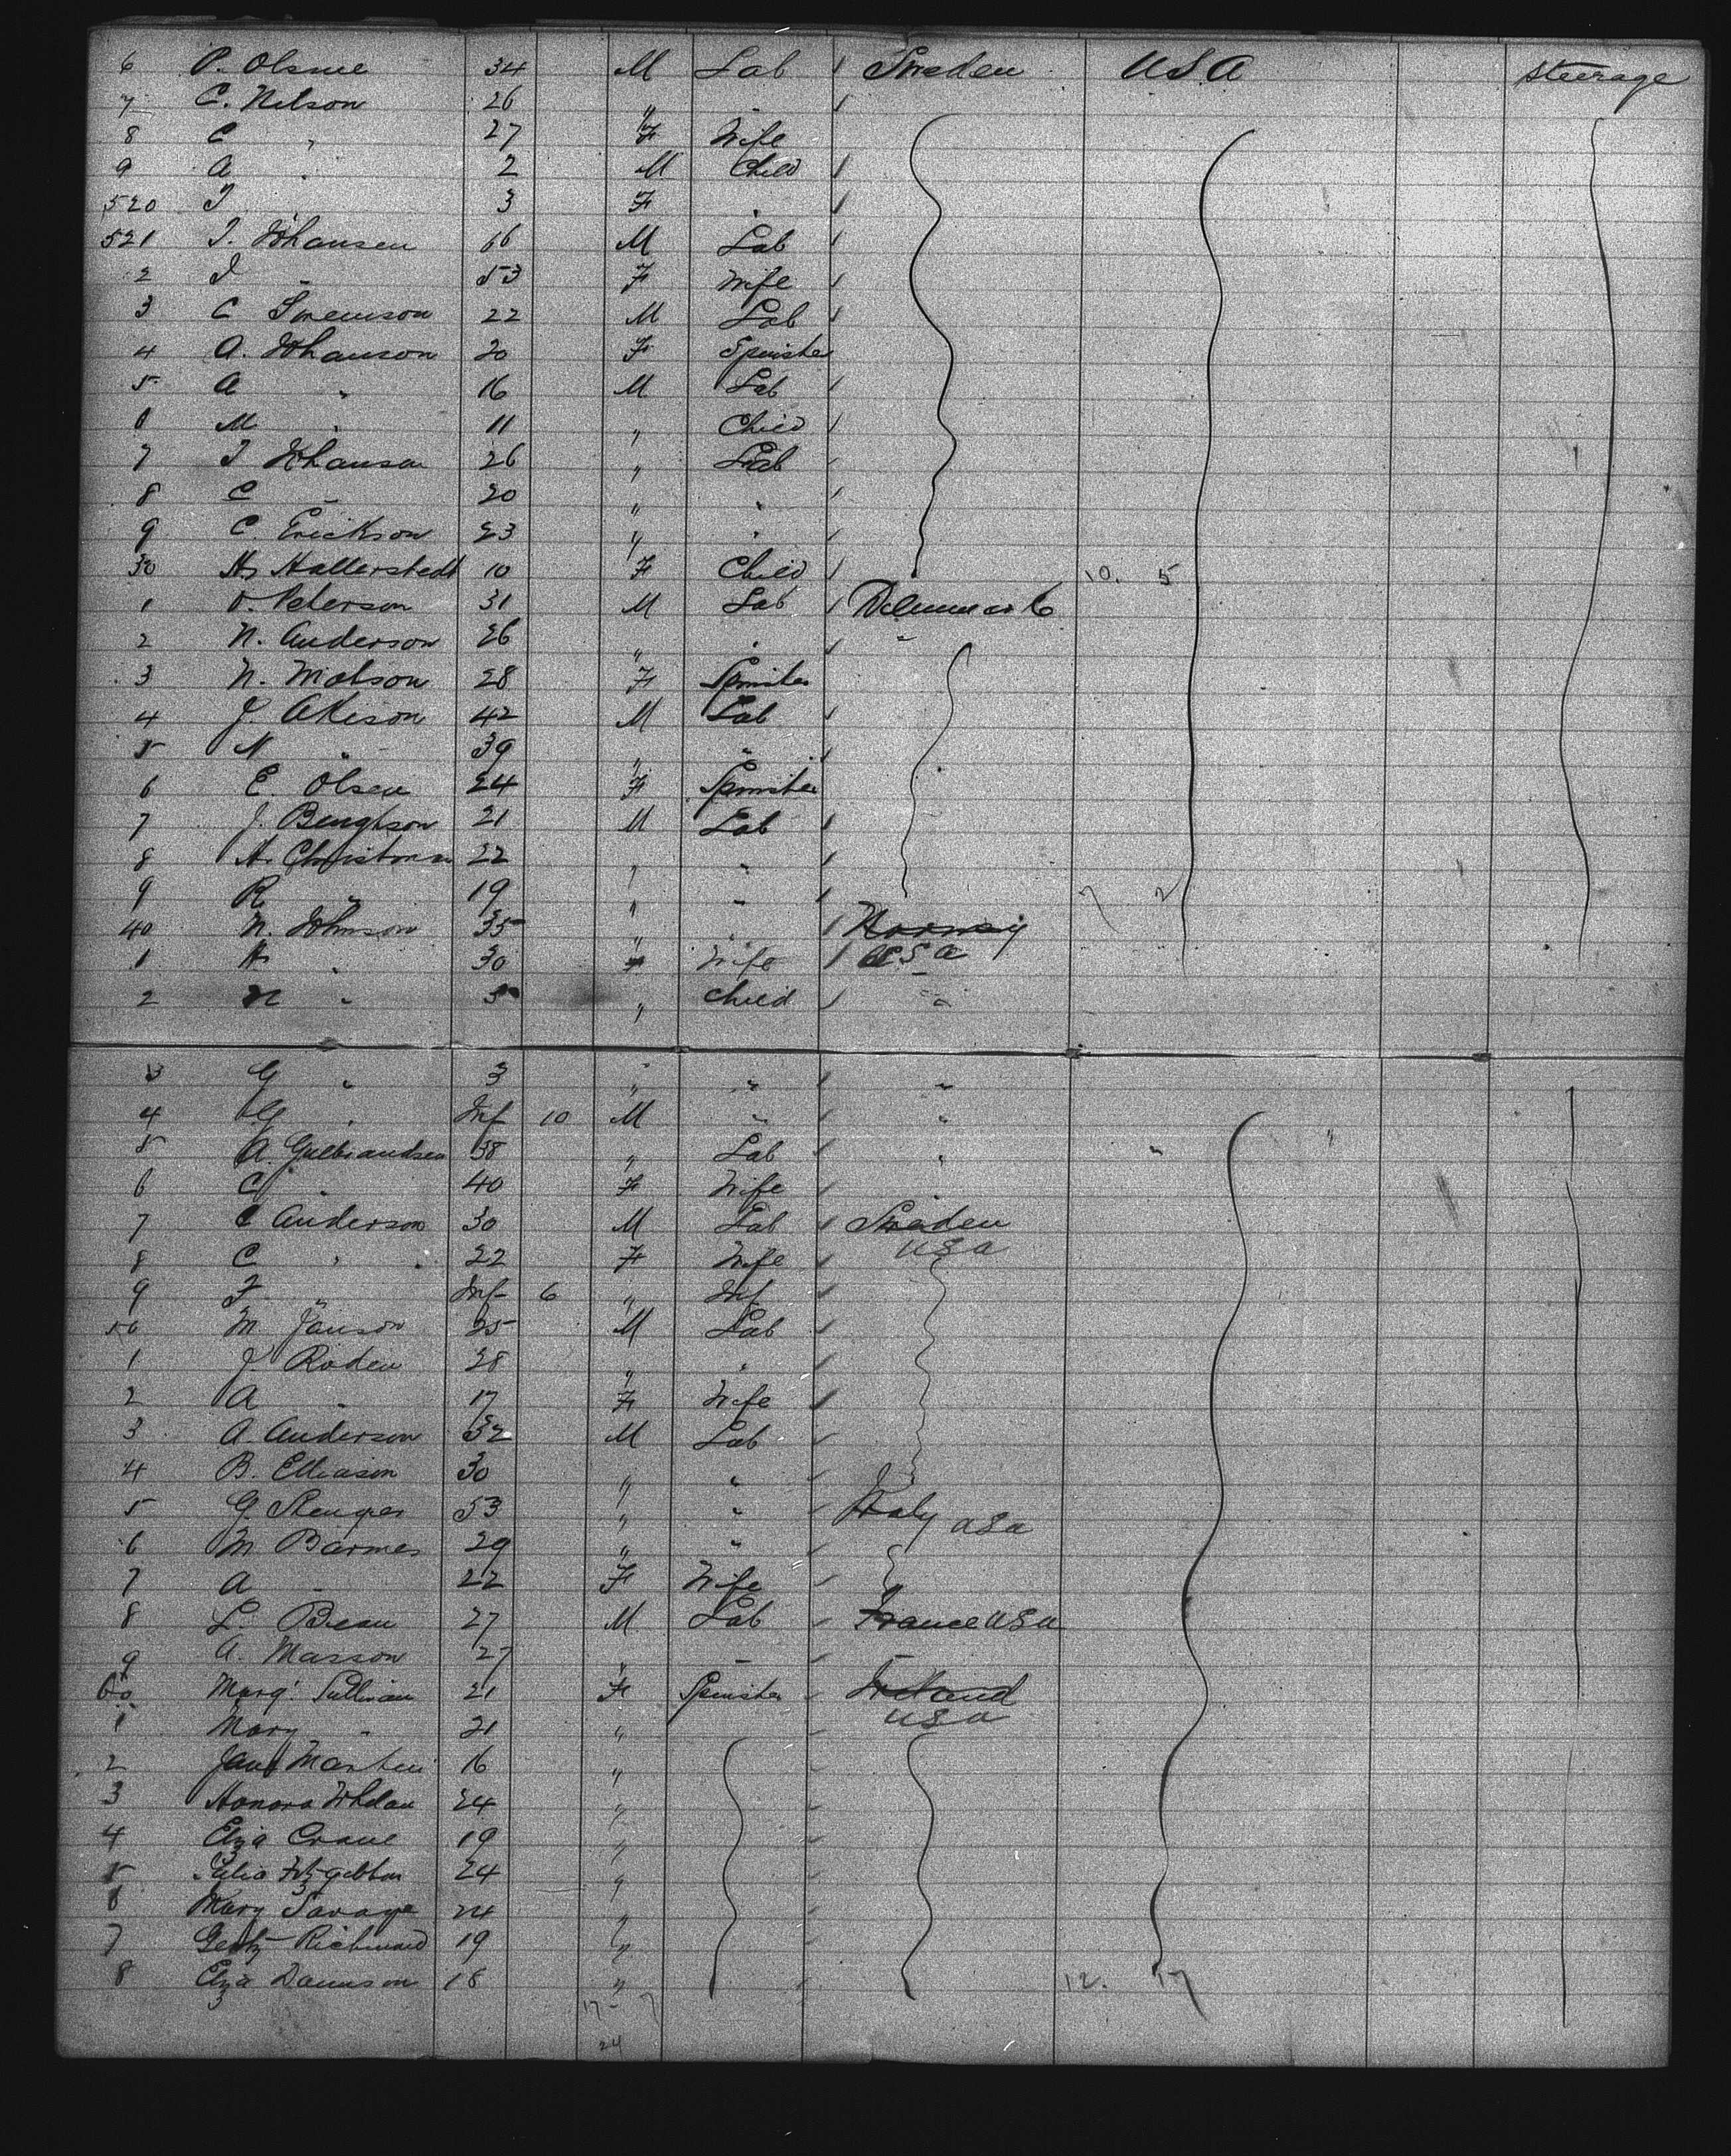 6 P. Olsme 34 M Lab Sweden USA Steerage
7 C. Nelson 26 " "
8 C " 27 F Wife
9 A " 2 M Child
520 T 3 F "
521 J. Johansen 66 M Lab
2 J " 53 F Wife
3 C Swenson 22 M Lab
4 A. Johanson 20 F Spinster
5 A " 16 M Lab
6 M " 11 " Child
7 J Johansen 26 " Lab
8 C " 20 " "
9 C. Erickson 23 " "
30 H. Hallerstedt 10 F Child 10. 5
1 O. Peterson 31 M Lab Denmark
2 N. Anderson 26 " " "
3 N. Matson 28 F Spinster
4 J. Akison 42 M Lab
5 N " 39 " "
6 E. Olsen 24 F Spinster
7 J. Bengtson 21 M Lab
8 A. 22 " "
9 R " 19 " " 7 2
40 N. Johnson 35 " " Norway
1 H " 30 F Wife USA
2 N " 5 " Child "
3 G " 3 " " "
4 G " Inf 10 M " "
5 A. Gulbrandsen 38 " Lab " " "
6 C " 40 F Wife "
7 C Anderson 30 M Lab Sweden
8 C " 22 F Wife USA
9 F " Inf 6 " Inf
50 M. Janson 25 M Lab
1 J. Roden 28 " "
2 A " 17 F Wife
3 A. Anderson 32 M Lab
4 B. Elliason 30 " "
5 G. 53 " " Italy USA
6 M. Barmes 29 " "
7 A " 22 F Wife
8 L. Beau 27 M Lab France USA
9 A. Masson 27 " " "
60 Marg. Sullivan 21 F Spinster Ireland
1 Mary " 21 " USA
2 Jane Martin 16 "
3 Honora Whelan 24 "
4 Eliza Crane 19 "
5 Julia Fitzgibbon 24 "
6 Mary Savage 24 "
7 Richmond 19 "
8 Eliza Dawnson 18 " 12. 17
17 - 7
24